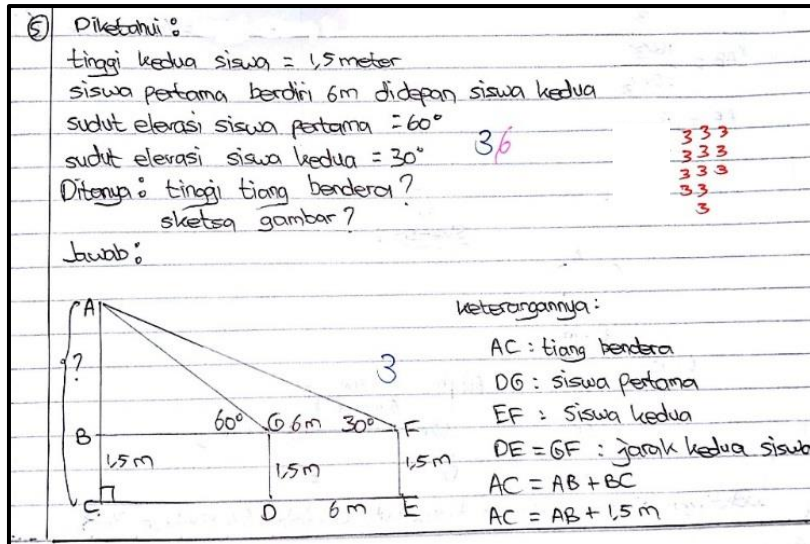 ⑤ Diketahui :
tinggi kedua siswa = 1,5 meter
siswa pertama berdiri 6m didepan siswa kedua
sudut elevasi siswa pertama = 60°
sudut elevasi siswa kedua = 30°
3 6
3 3 3
3 3 3
3 3 3
3 3
3
Ditanya : tinggi tiang bendera ?
sketsa gambar ?
Jawab :
A
?
60° G 6m 30° F
B
1,5 m 1,5 m 1,5 m
C D 6 m E
3
keterangannya :
AC : tiang bendera
DG : siswa pertama
EF : siswa kedua
DE = GF : jarak kedua siswa
AC = AB + BC
AC = AB + 1,5 m